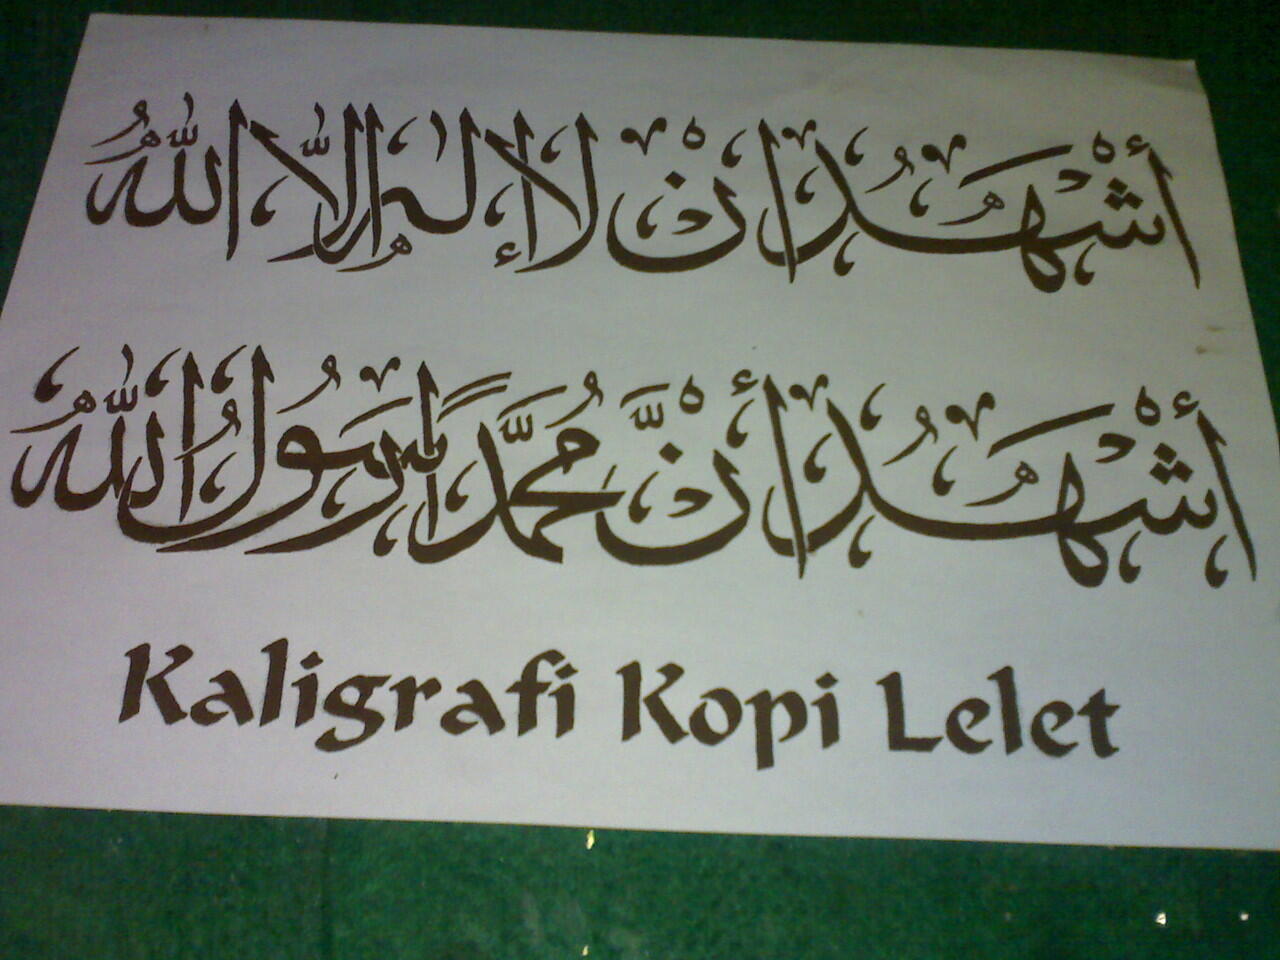 أَشْهَدُ انْ لاَ إِلٰهَ اِلاَّ اللهُ
أَشْهَدُ أَنْ مُحَمَّدًا رَسُوْلُ اللهُ
Kaligrafi Kopi Lelet